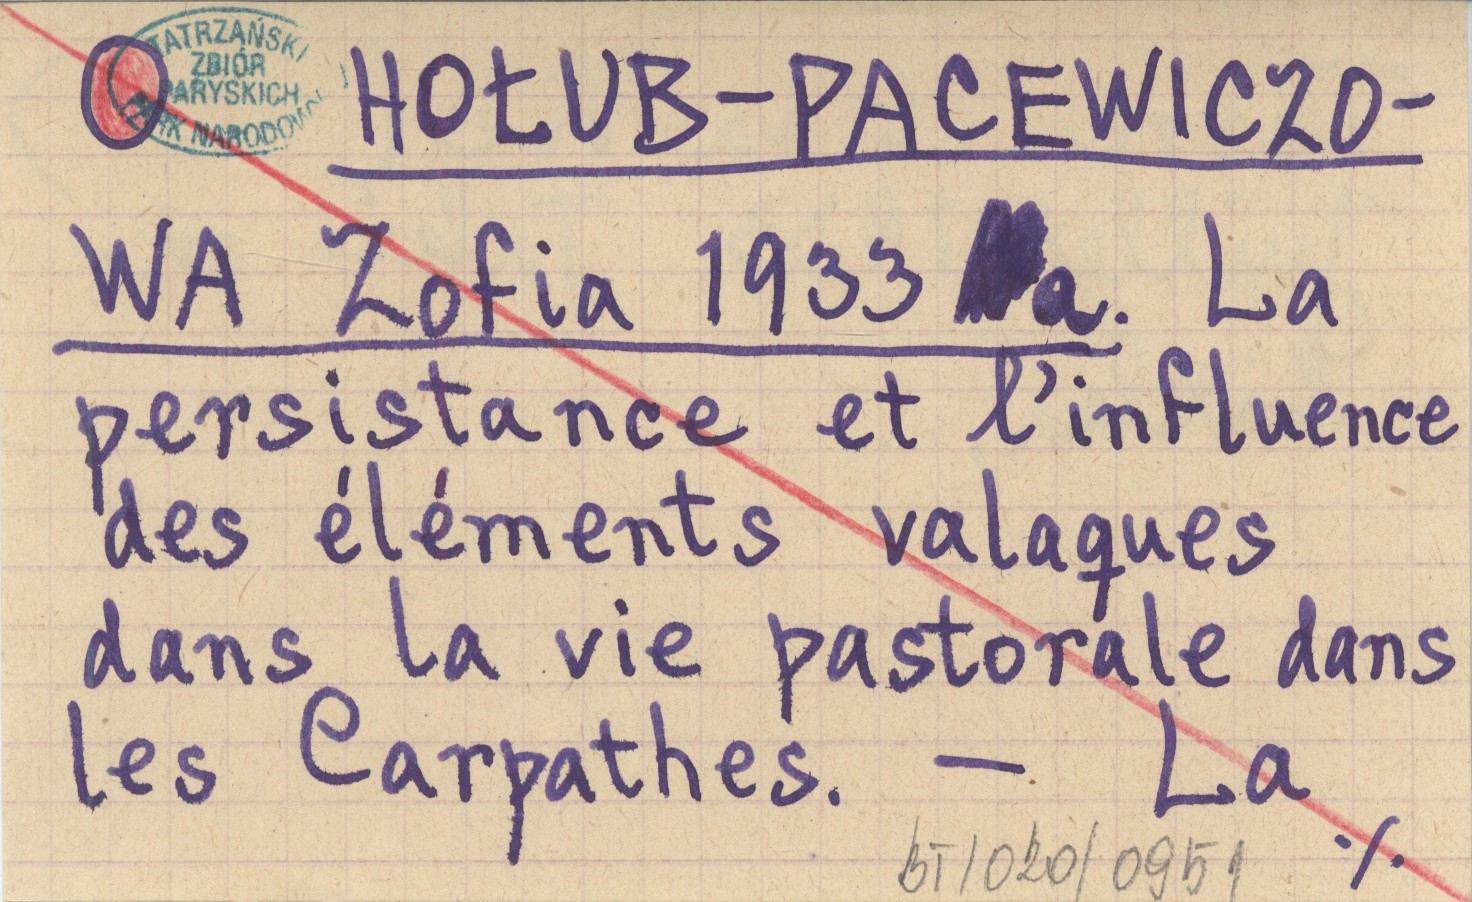 O
TATRZAŃSKI
ZBIÓR
PARYSKICH
PARK NARODOWY
HOŁUB-PACEWICZO-
WA Zofia 1933 a. La
persistance et l'influence
des éléments valaques
dans la vie pastorale dans
les Carpathes. — La
./.
BT/020/0951